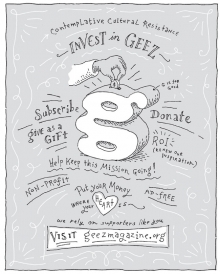 Contemplative Cultural Resistance
INVEST in GEEZ
Subscribe
give as a
GIFT
Donate
ROI:
Help Keep this Mission Going!
NON-PROFIT
AD-FREE
Put your Money
where
your HEART is
we rely on supporters like you
VISIT geezmagazine.org